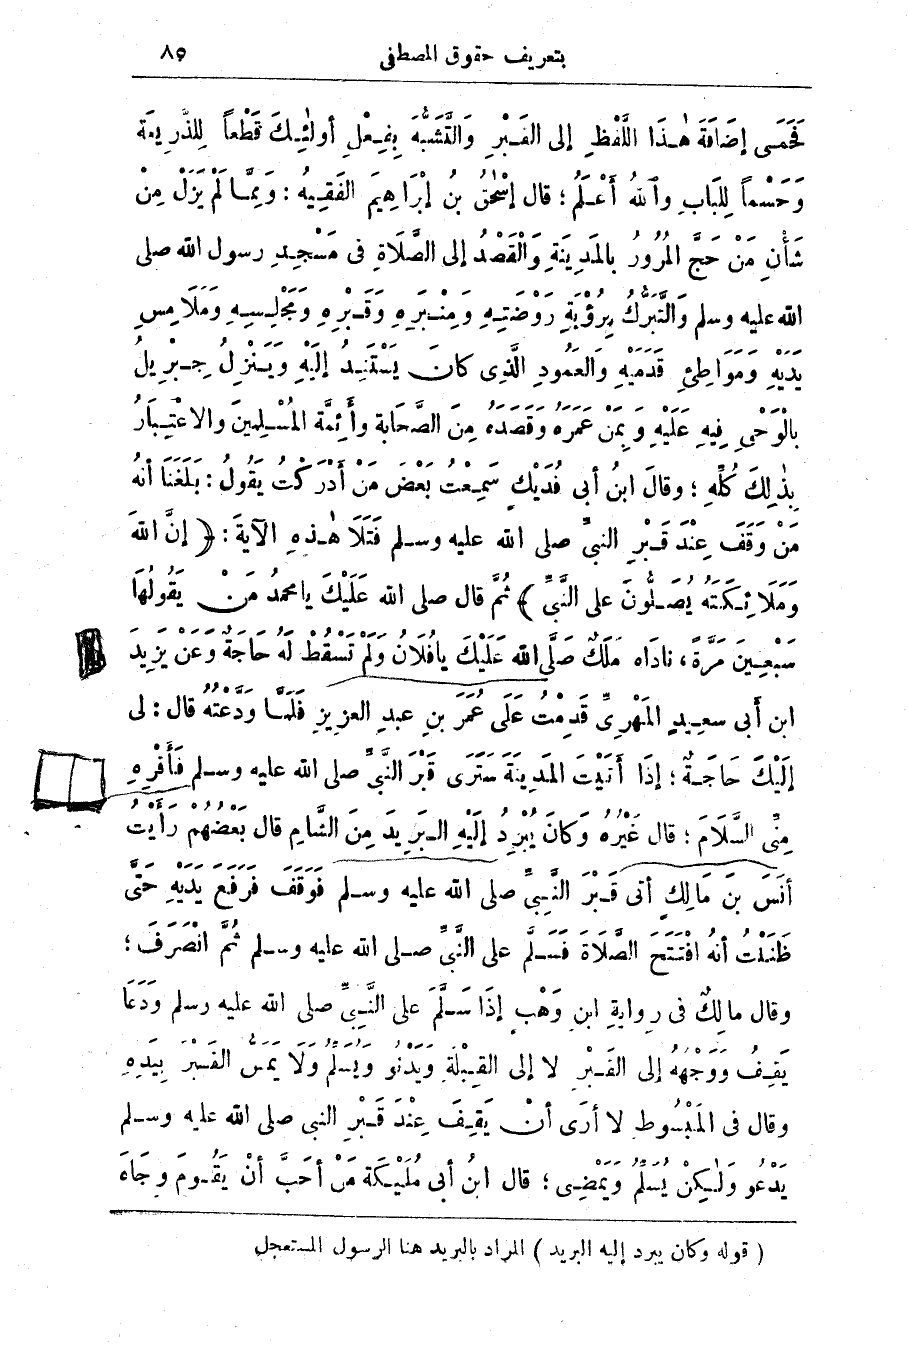 بتعريف حقوق المصطفى ٨٥
فَحَمَى إضَافَةَ هٰذَا اللَّفْظِ إلى القَبْرِ وَالتَّشَبُّهَ بِفِعْلِ أولئِكَ قَطْعاً لِلذَّرِيعَةِ
وَحَسْماً لِلْبَابِ وَاللهُ أَعْلَمُ ؛ قال إسْحٰقُ بنُ إبْرَاهِيمَ الفَقِيهُ : وَمِمَّا لَمْ يَزَلْ مِنْ
شَأْنِ مَنْ حَجَّ المُرُورُ بالمَدِينَةِ وَالْقَصْدُ إلى الصَّلَاةِ فى مَسْجِدِ رسول الله صلى
الله عليه وسلم وَالتَّبَرُّكُ بِرُؤْيَةِ رَوْضَتِهِ وَمِنْبَرِهِ وَقَبْرِهِ وَمَجْلِسِهِ وَمَلَامِسِ
يَدَيْهِ وَمَوَاطِئِ قَدَمَيْهِ وَالعَمُودِ الَّذِى كانَ يَسْتَنِدُ إلَيْهِ وَيَنْزِلُ جِبْرِيلُ
بِالْوَحْىِ فِيهِ عَلَيْهِ وَبِمَنْ عَمَرَهُ وَقَصَدَهُ مِنَ الصَّحَابَةِ وأَئِمَّةِ المُسْلِمِينَ والاعْتِبَارُ
بِذٰلِكَ كُلِّهِ ؛ وقالَ ابنُ أبى فُدَيْكٍ سَمِعْتُ بَعْضَ مَنْ أَدْرَكْتُ يَقُولُ : بَلَغَنَا أنهُ
مَنْ وَقَفَ عِنْدَ قَبْرِ النبىِّ صلى الله عليه وسلم فَتَلَا هٰذِهِ الآيَةَ : ( إنَّ اللهَ
وَمَلَائِكَتَهُ يُصَلُّونَ على النَّبِىِّ ) ثُمَّ قال صلى الله عَلَيْكَ يامحمدُ مَنْ يَقُولُهَا
سَبْعِينَ مَرَّةً ، ناداه مَلَكٌ صَلَّى الله عَلَيْكَ يافُلَانُ وَلَمْ تَسْقُطْ لَهُ حَاجَةٌ وَعَن يَزِيدَ
ابن أبى سعيدٍ المَهْرِىِّ قَدِمْتُ عَلَى عُمَرَ بنِ عبدِ العزيزِ فَلَمَّا وَدَّعْتُهُ قال : لى
إلَيْكَ حَاجَةٌ ؛ إذَا أتَيْتَ المَدِينَةَ سَتَرَى قَبْرَ النَّبِىِّ صلى الله عليه وسلم فَأَقْرِهِ
مِنِّى السَّلَامَ ؛ قال غَيْرُهُ وَكانَ يُبْرِدُ إلَيْهِ البَرِيدَ مِنَ الشَّامِ قال بَعْضُهم رَأَيْتُ
أنَسَ بنَ مَالِكٍ أتى قَبْرَ النَّبِىِّ صلى الله عليه وسلم فَوَقَفَ فَرَفَعَ يَدَيْهِ حَتَّى
ظَنَنْتُ أنهُ افْتَتَحَ الصَّلَاةَ فَسَلَّمَ على النَّبِىِّ صلى الله عليه وسلم ثُمَّ انْصَرَفَ ؛
وقال مالِكٌ فى رِوايةِ ابنِ وَهْبٍ إذَا سَلَّمَ على النَّبِىِّ صلى الله عليه وسلم وَدَعَا
يَقِفُ وَوَجْهُهُ إلى القَبْرِ لا إلى القِبْلَةِ وَيَدْنُو وَيُسَلِّمُ وَلَا يَمَسُّ القَبْرَ بِيَدِهِ
وقال فى المَبْسُوطِ لا أرَى أنْ يَقِفَ عِنْدَ قَبْرِ النبى صلى الله عليه وسلم
يَدْعُو وَلٰكِنْ يُسَلِّمُ وَيَمْضِى ؛ قال ابنُ أبى مُلَيْكَةَ مَنْ أحَبَّ أنْ يَقُومَ وِجَاهَ
( قوله وكان يبرد إليه البريد ) المراد بالبريد هنا الرسول المستعجل